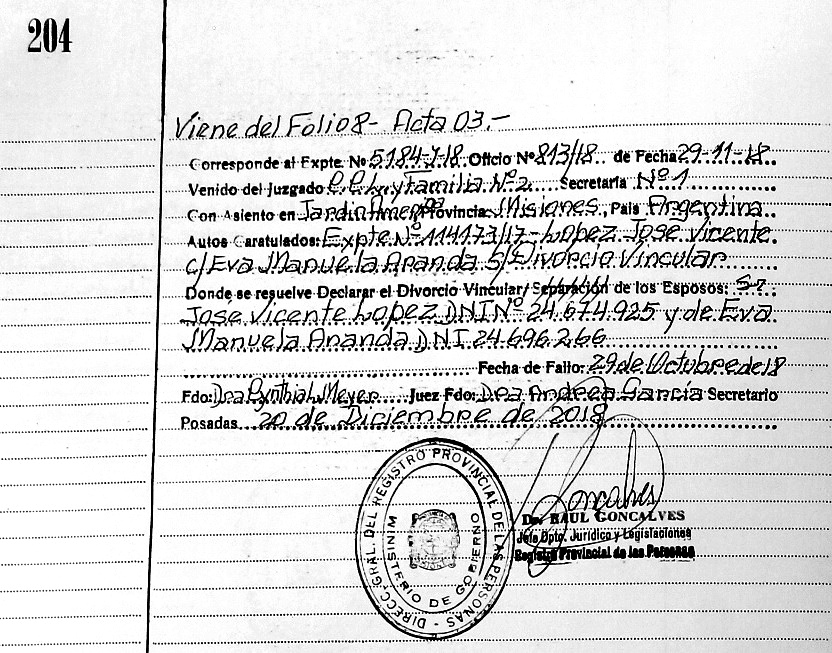 204
Viene del Folio 8- Acta 03.-
Corresponde al Expte. Nº 5184-J-18. Oficio Nº 813/18.. de Fecha 29-11-18
Venido del Juzgado C.C.L. y Familia Nº2..... Secretaría Nº1
Con Asiento en Jardín América Provincia: Misiones, País Argentina
Autos Caratulados: Expte. Nº 114173/17- Lopez Jose Vicente
c/Eva Manuela Aranda S/Divorcio Vincular
Donde se resuelve Declarar el Divorcio Vincular/ Separación de los Esposos: Sr
Jose Vicente Lopez DNI Nº 24.674.925 y de Eva
Manuela Aranda DNI 24.696.266
Fecha de Fallo: 29 de Octubre de 18
Fdo: Dra. Cynthia L. Meyer. Juez Fdo: Dra Andrea García Secretario
Posadas 20 de Diciembre de 2018
DIRECC. GRAL. DEL REGISTRO PROVINCIAL DE LAS PERSONAS -
MINISTERIO DE GOBIERNO
Goncalves
Dr. RAUL GONCALVES
Jefe Dpto. Jurídico y Legislaciones
Registro Provincial de las Personas